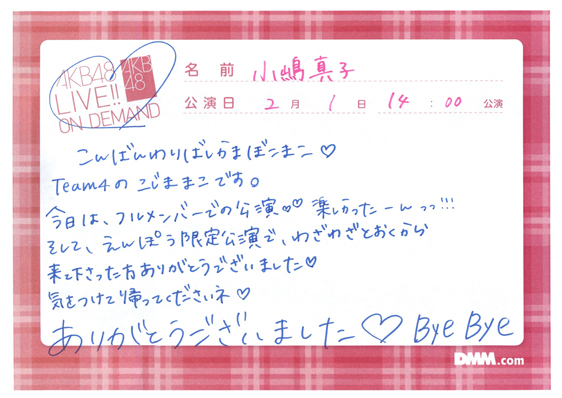 AKB48
LIVE!!
ON DEMAND
AKB
48
名前 小嶋真子
公演日 2月1日 14:00 公演
こんばんわりばしかまぼこまこ♡
Team4の こじままこです。
今日は、フルメンバーでの公演♡♡ 楽しかったーんっっ!!!
そして、えんぽう限定公演で、わざわざとおくから
来て下さった方ありがとうございました♡
気をつけて帰ってくださいネ♡
ありがとうございました♡ Bye Bye
DMM.com